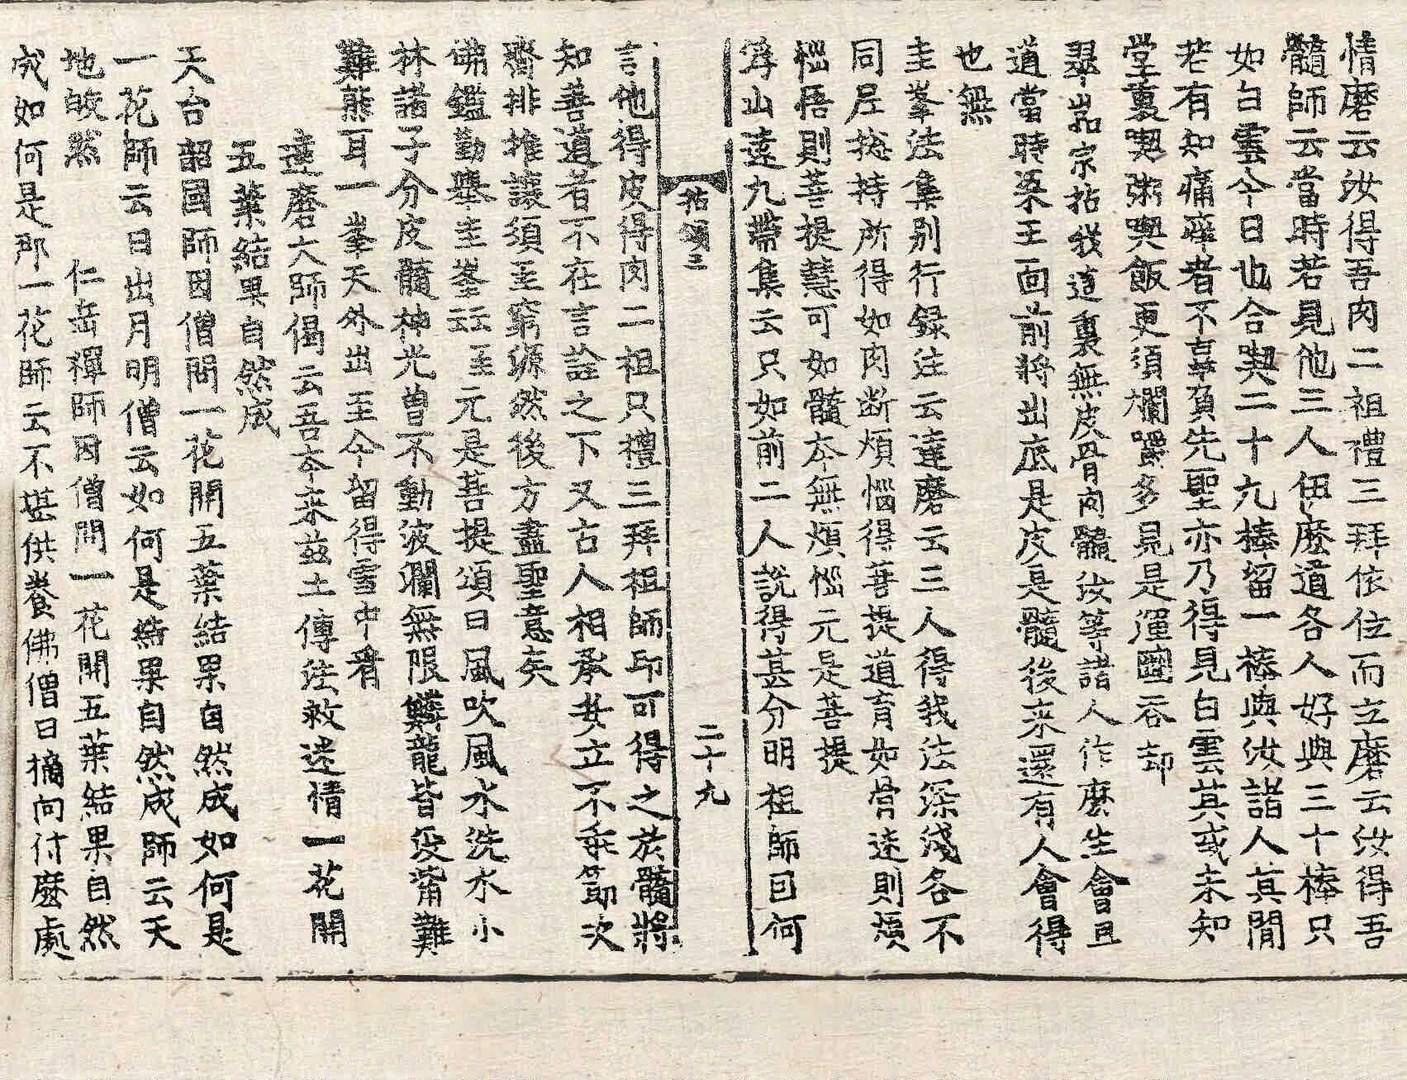 情磨云汝得吾肉二祖禮三拜依位而立磨云汝得吾
髓師云當時若見他三人伍麽道各人好與三十棒只
如白雲今日也合喫二十九棒留一棒與汝諸人其間
若有知痛痒者不辜負先聖亦乃得見白雲其或未知
堂裏喫粥喫飯更須爛嚼多見是渾圇吞却
翠岩宗拈我這裏無皮骨肉髓汝等諸人作麽生會且
道當時梁王面前將出底是皮是髓後来還有人會得
也無
圭峯法集别行録注云達磨云三人得我法深淺各不
同尼捴持所得如肉断煩惱得菩提道育如骨迷則煩
惱悟則菩提慧可如髓夲無煩惱元是菩提
浮山遠九帶集云只如前二人說得甚分明祖師曰何
拈頌三
二十九
言他得皮得肉二祖只禮三拜祖師印可得之於髓將
知善道者不在言詮之下又古人相承安立不乖節次
齊排推讓須至窮源然後方盡聖意矣
佛鑑勤擧圭峯云云至元是菩提頌曰風吹風水洗水小
林諸子分皮髓神光曾不動波瀾無限魚龍皆没溺難
難熊耳一峯天外出至今留得雪中看
達磨大師偈云吾夲来茲土傳法救迷情一花開
五葉結果自然成
天台韶國師因僧問一花開五葉結果自然成如何是
一花師云日出月明僧云如何是結果自然成師云天
地皎然 仁岳禪師因僧問一花開五葉結果自然
成如何是那一花師云不堪供養佛僧曰摘向什麽處